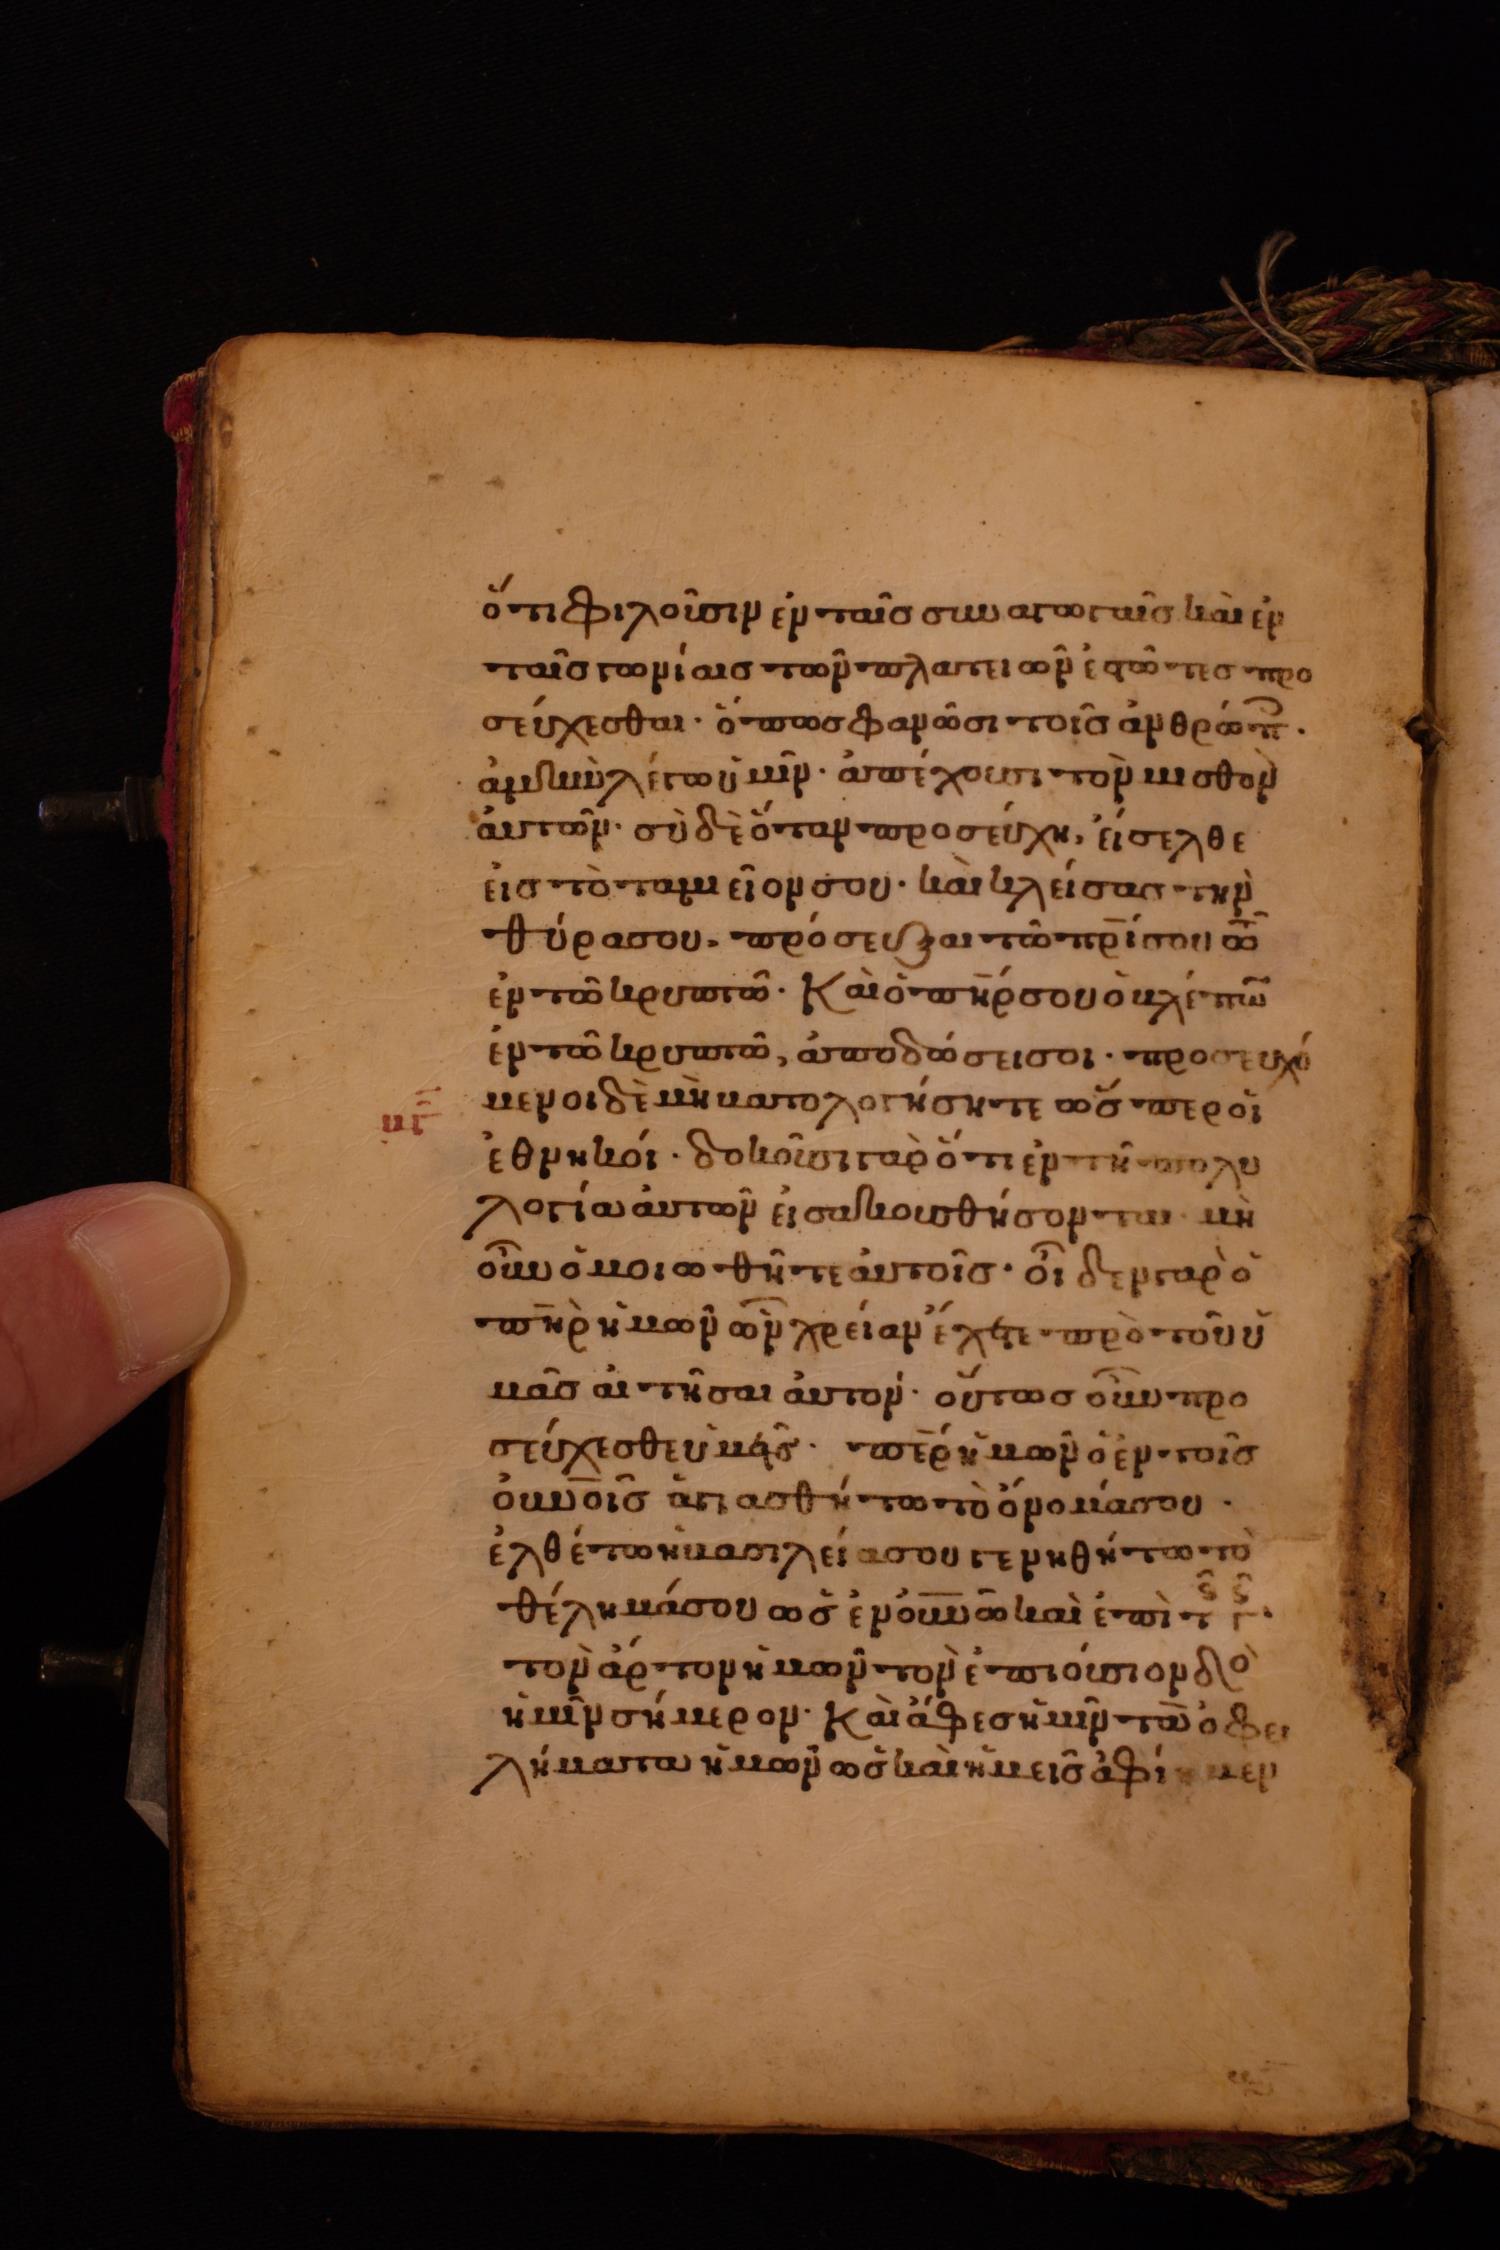 ὅτι φιλοῦσιν ἐν ταῖς συναγωγαῖς καὶ ἐν
ταῖς γωνίαις τῶν πλατειῶν ἑστῶτες προ
σεύχεσθαι· ὅπως φανῶσι τοῖς ἀνθρώπ·
ἀμὴν λέγω ὑμῖν· ἀπέχουσι τὸν μισθὸν
ἀυτῶν· σὺ δὲ ὅταν προσεύχη, ἐίσελθε
εἰς τὸ ταμεῖον σου· καὶ κλείσας τὴν
θύρα σου, πρόσευξαι τῶ πρί σου τῶ
ἐν τῶ κρυπτῶ· Καὶ ὁ πήρ σου ὁ βλέπων
ἐν τῶ κρυπτῶ, ἀποδώσει σοι· προσευχό
μενοι δὲ μὴ βατολογήσητε ὥσπερ οἱ
ἐθνηκόι· δοκοῦσι γὰρ ὅτι ἐν τῆ πολυ
λογία ἀυτῶν εἰσακουσθήσονται μὴ
οὖν ὁμοιωθῆτε ἀυτοῖς· οἶδεν γὰρ ὁ
πὴρ ἡμῶν ὧν χρείαν ἔχετε πρὸ τοῦ ὑ
μᾶς ἀιτῆσαι ἀυτόν· οὕτως οὖν προ
σεύχεσθε ὑμεῖς· πέρ ἡμῶν ὁ ἐν τοῖς
ὀυνοῖς ἁγιασθήτω τὸ ὄνομά σου·
ἐλθέτω ἡ βασιλεία σου γενηθήτω τὸ
θέλημά σου ὡς ἐν ὀυνῶ καὶ ἐπὶ τῆς γῆς·
τὸν ἄρτον ἡμῶν τὸν ἐπιούσιον δὸ
ἡμῖν σήμερον· Καὶ ἄφες ἡμῖν τὰ ὀφει
λήματα ἡμῶν ὡς καὶ ἡμεῖς ἀφίεμεν